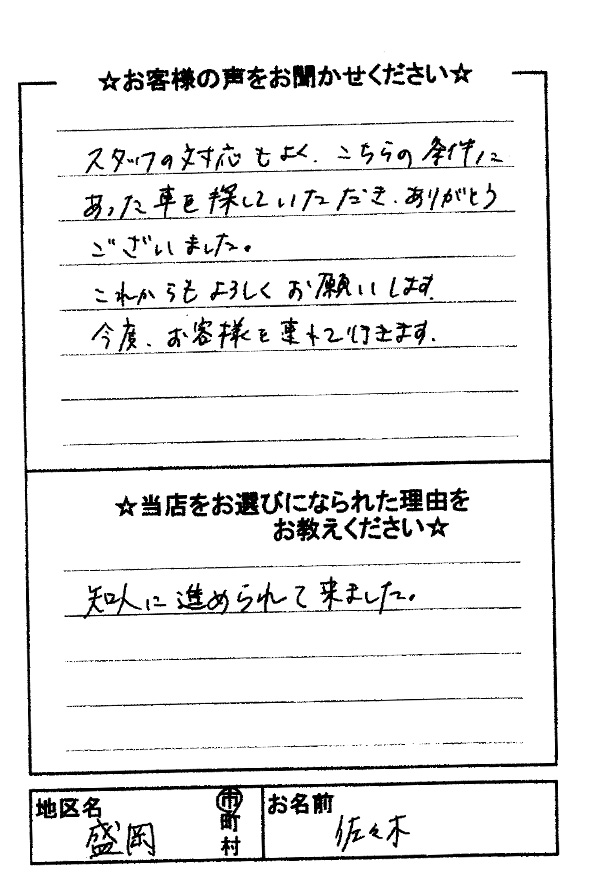 ☆お客様の声をお聞かせください☆
スタッフの対応もよく、こちらの条件に
あった車を探していただき、ありがとう
ございました。
これからもよろしくお願いします。
今度、お客様を連れて行きます。
☆当店をお選びになられた理由を
お教えください☆
知人に進められて来ました。
地区名
盛岡
市
町
村
お名前
佐々木